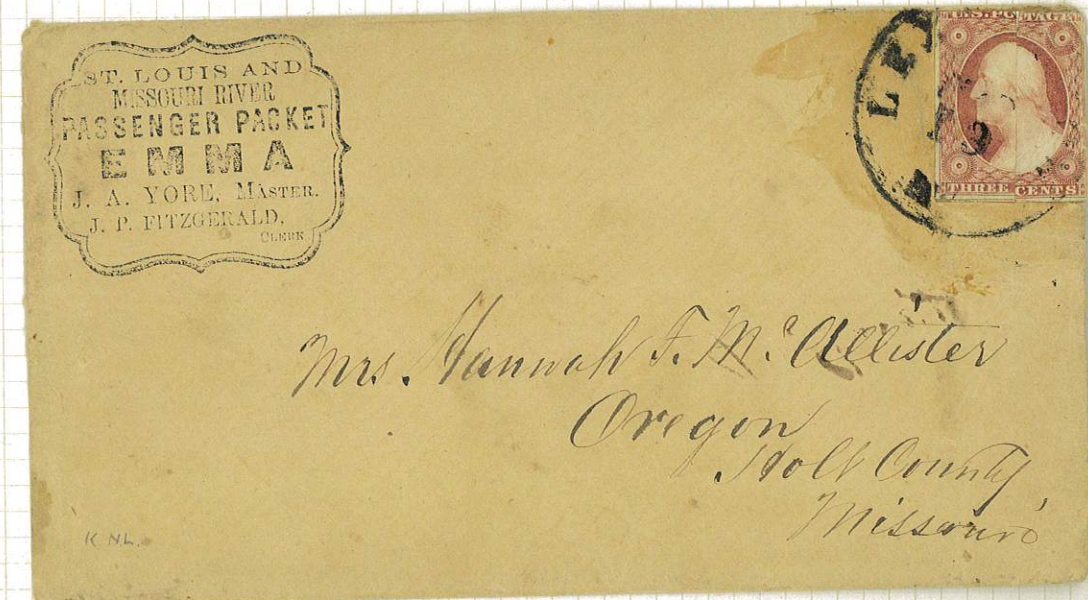 ST. LOUIS AND
MISSOURI RIVER
PASSENGER PACKET
EMMA
J. A. YORE, MASTER.
J. P. FITZGERALD,
CLERK.
U.S. POSTAGE
THREE CENTS
LEX
9
Mrs. Hannah F. Mc Allister
Oregon
Holt County,
Missouri
K N.L.